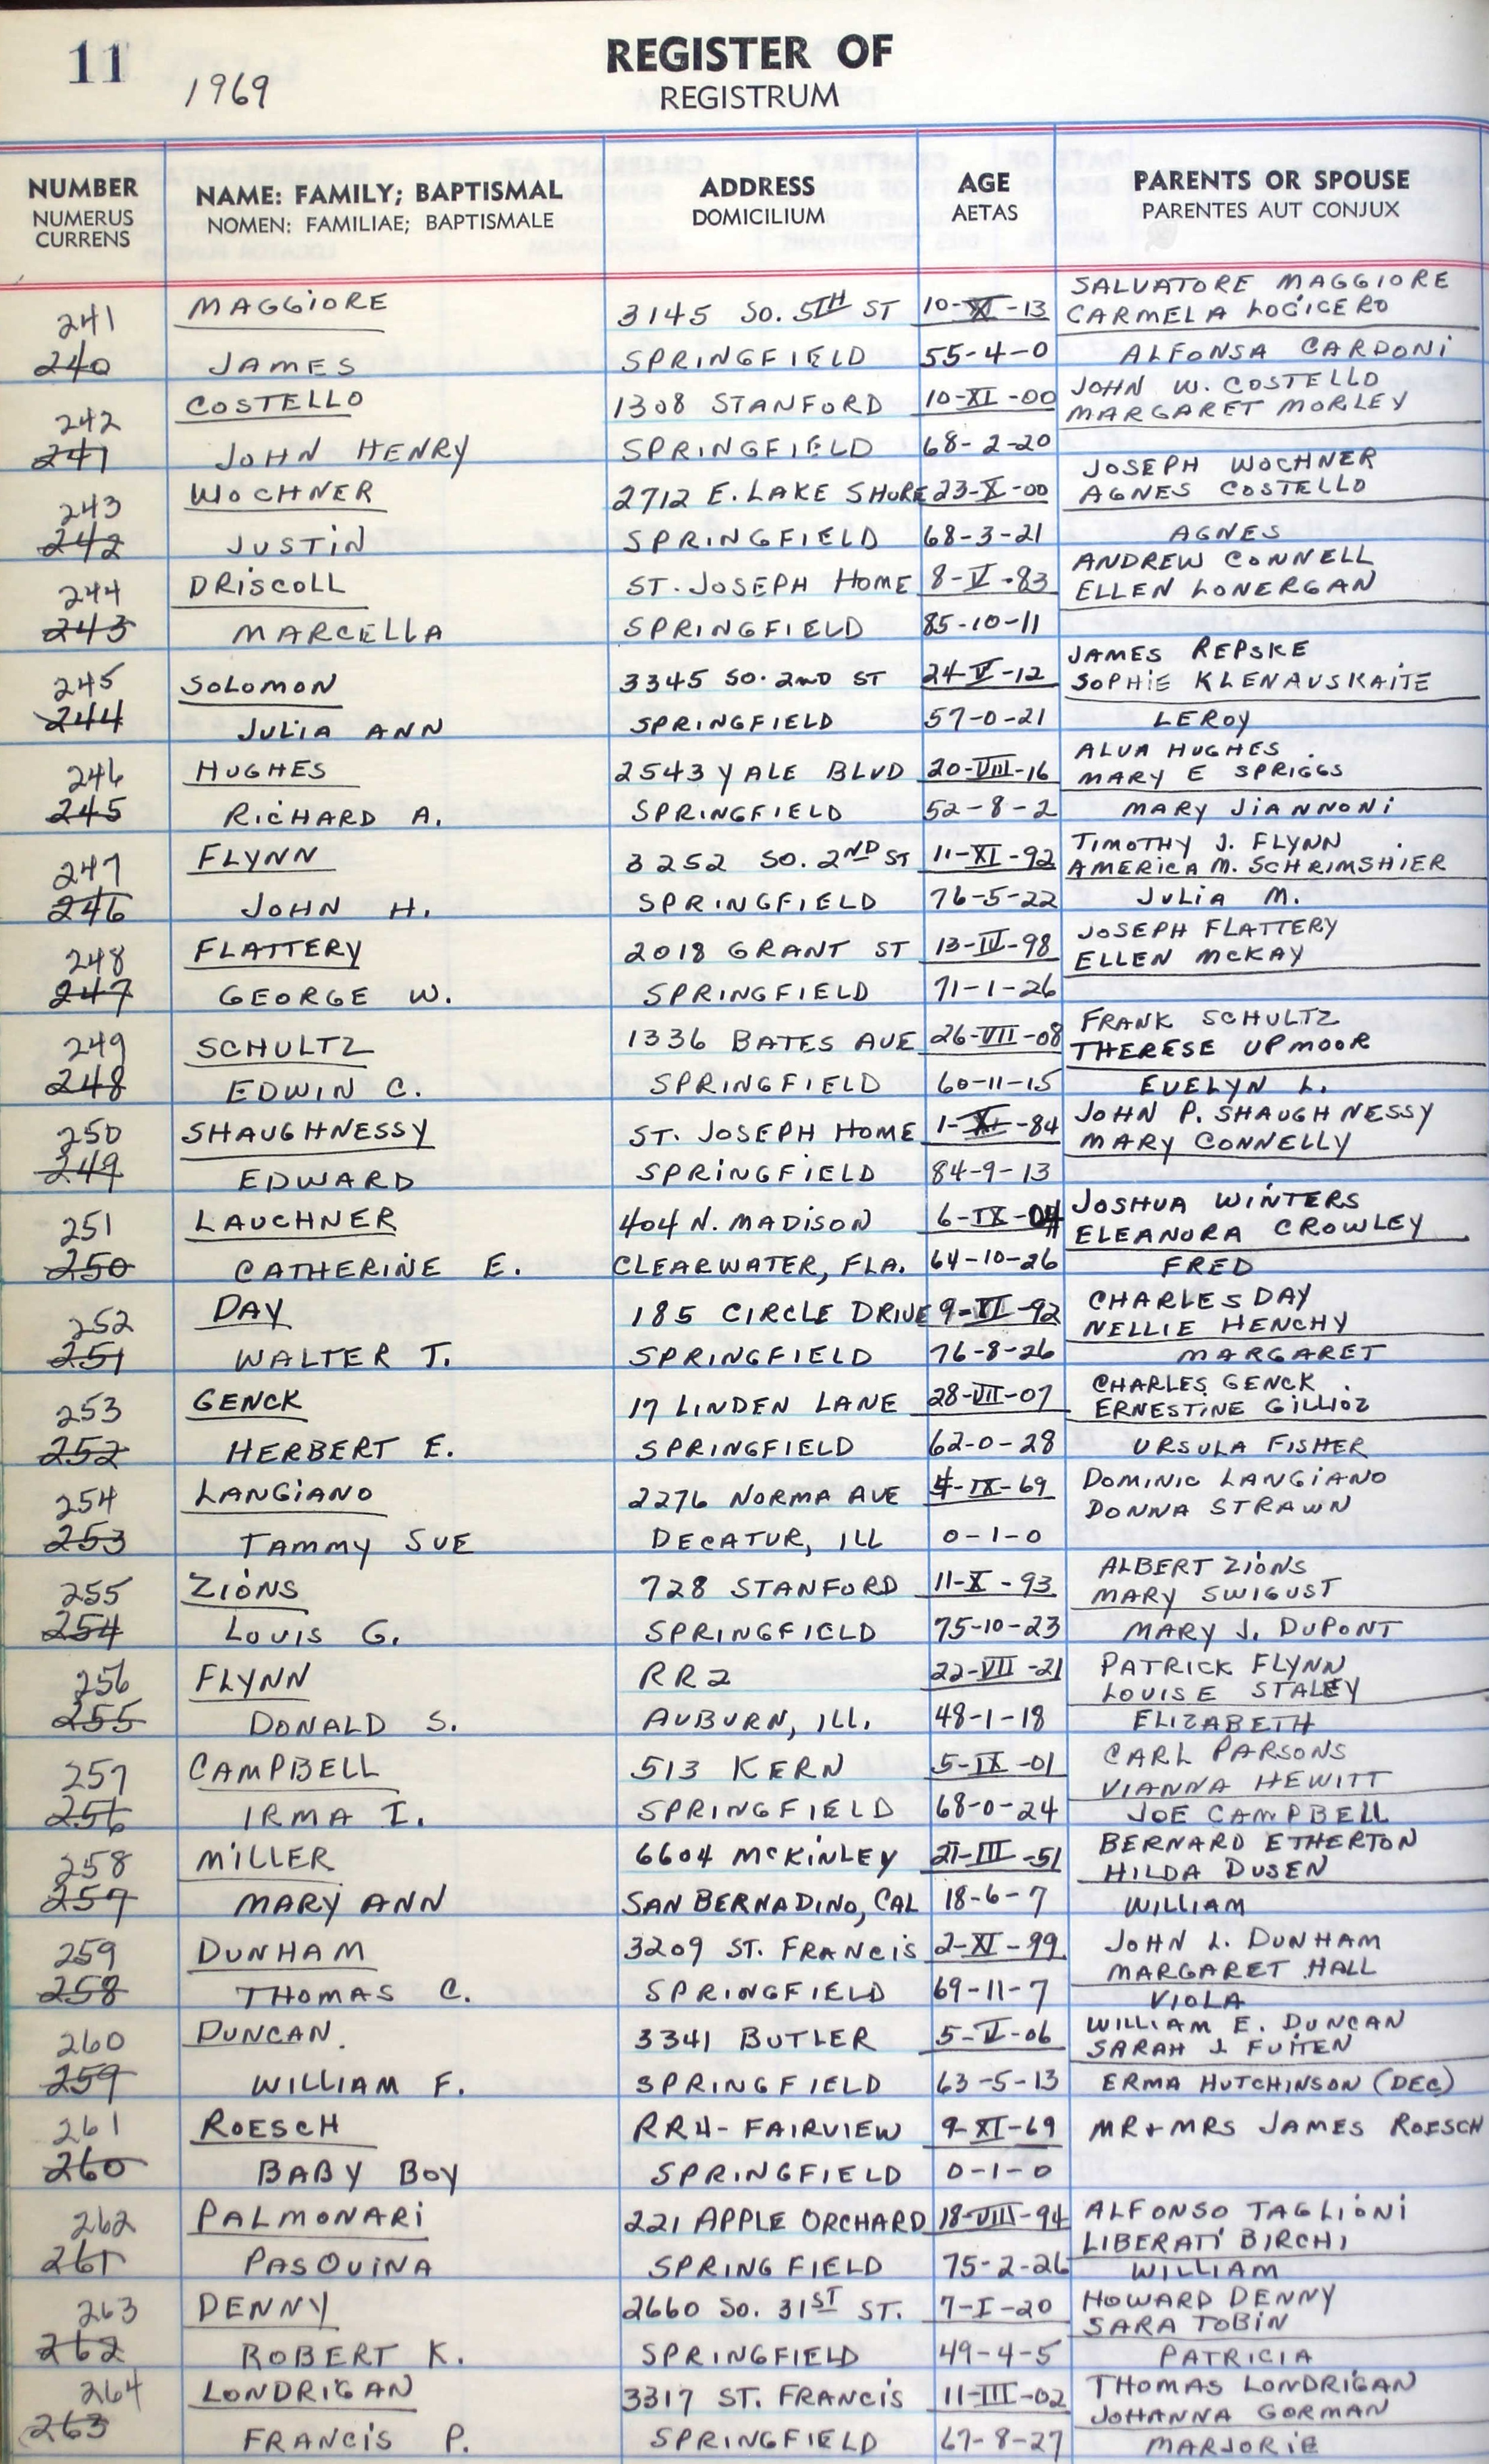 11
1969
REGISTER OF
REGISTRUM
NUMBER
NUMERUS
CURRENS
NAME: FAMILY; BAPTISMAL
NOMEN: FAMILIAE; BAPTISMALE
ADDRESS
DOMICILIUM
AGE
AETAS
PARENTS OR SPOUSE
PARENTES AUT CONJUX
SALVATORE MAGGIORE
241 MAGGIORE 3145 SO. 5TH ST 10-XI-13 CARMELA LOGICERO
240 JAMES SPRINGFIELD 55-4-0 ALFONSA CARDONI
JOHN W. COSTELLO
242 COSTELLO 1308 STANFORD 10-XI-00 MARGARET MORLEY
241 JOHN HENRY SPRINGFIELD 68-2-20
JOSEPH WOCHNER
243 WOCHNER 2712 E. LAKE SHORE 23-X-00 AGNES COSTELLO
242 JUSTIN SPRINGFIELD 68-3-21 AGNES
ANDREW CONNELL
244 DRISCOLL ST. JOSEPH HOME 8-V-83 ELLEN LONERGAN
243 MARCELLA SPRINGFIELD 85-10-11
JAMES REPSKE
245 SOLOMON 3345 SO. 2ND ST 24-V-12 SOPHIE KLENAUSKAITE
244 JULIA ANN SPRINGFIELD 57-0-21 LEROY
ALVA HUGHES
246 HUGHES 2543 YALE BLVD 20-VIII-16 MARY E SPRIGGS
245 RICHARD A. SPRINGFIELD 52-8-2 MARY JIANNONI
TIMOTHY J. FLYNN
247 FLYNN 3252 SO. 2ND ST 11-XI-92 AMERICA M. SCHRIMSHIER
246 JOHN H. SPRINGFIELD 76-5-22 JULIA M.
JOSEPH FLATTERY
248 FLATTERY 2018 GRANT ST 13-IV-98 ELLEN MCKAY
247 GEORGE W. SPRINGFIELD 71-1-26
FRANK SCHULTZ
249 SCHULTZ 1336 BATES AVE 26-VII-08 THERESE UPMOOR
248 EDWIN C. SPRINGFIELD 60-11-15 EVELYN L.
JOHN P. SHAUGHNESSY
250 SHAUGHNESSY ST. JOSEPH HOME 1-XI-84 MARY CONNELLY
249 EDWARD SPRINGFIELD 84-9-13
JOSHUA WINTERS
251 LAUCHNER 404 N. MADISON 6-IX-04 ELEANORA CROWLEY
250 CATHERINE E. CLEARWATER, FLA. 64-10-26 FRED
CHARLES DAY
252 DAY 185 CIRCLE DRIVE 9-XI-92 NELLIE HENCHY
251 WALTER T. SPRINGFIELD 76-8-26 MARGARET
CHARLES GENCK
253 GENCK 17 LINDEN LANE 28-VII-07 ERNESTINE GILLIOZ
252 HERBERT E. SPRINGFIELD 62-0-28 URSULA FISHER
DOMINIC LANGIANO
254 LANGIANO 2276 NORMA AVE 4-IX-69 DONNA STRAWN
253 TAMMY SUE DECATUR, ILL 0-1-0
ALBERT ZIONS
255 ZIONS 728 STANFORD 11-X-93 MARY SWIGUST
254 LOUIS G. SPRINGFIELD 75-10-23 MARY J. DUPONT
PATRICK FLYNN
256 FLYNN RR2 22-VII-21 LOUISE STALEY
255 DONALD S. AUBURN, ILL. 48-1-18 ELIZABETH
CARL PARSONS
257 CAMPBELL 513 KERN 5-IX-01 VIANNA HEWITT
256 IRMA I. SPRINGFIELD 68-0-24 JOE CAMPBELL
BERNARD ETHERTON
258 MILLER 6604 MCKINLEY 21-III-51 HILDA DUSEN
257 MARY ANN SAN BERNADINO, CAL 18-6-7 WILLIAM
JOHN L. DUNHAM
259 DUNHAM 3209 ST. FRANCIS 2-XI-99 MARGARET HALL
258 THOMAS C. SPRINGFIELD 69-11-7 VIOLA
WILLIAM E. DUNCAN
260 DUNCAN 3341 BUTLER 5-V-06 SARAH J FUITEN
259 WILLIAM F. SPRINGFIELD 63-5-13 ERMA HUTCHINSON (DEC)
261 ROESCH RR4- FAIRVIEW 9-XI-69 MR + MRS JAMES ROESCH
260 BABY BOY SPRINGFIELD 0-1-0
ALFONSO TAGLIONI
262 PALMONARI 221 APPLE ORCHARD 18-VIII-94 LIBERATI BIRCHI
261 PASQUINA SPRINGFIELD 75-2-26 WILLIAM
HOWARD DENNY
263 DENNY 2660 SO. 31ST ST. 7-I-20 SARA TOBIN
262 ROBERT K. SPRINGFIELD 49-4-5 PATRICIA
THOMAS LONDRIGAN
264 LONDRIGAN 3317 ST. FRANCIS 11-III-02 JOHANNA GORMAN
263 FRANCIS P. SPRINGFIELD 67-8-27 MARJORIE